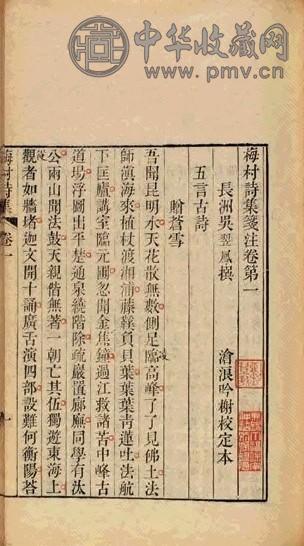 中华收藏网
www.pmv.cn
梅村詩集箋注卷第一
長洲吳翌鳳撰 滄浪吟榭校定本
五言古詩
贈蒼雪
吾聞昆明水天花散無數側足臨高峰了了見佛土法
師滇海來植杖渡湘浦藤鞵負貝葉葉葉青蓮吐法航
下匡廬講室臨元圃忽聞金焦鐘過江救諸苦中峰古
道場浮圖出平楚通泉繞階除疏巖置廊廡同學有汰
公兩山聞法鼓天親偕無著一朝亡其伍獨遊東海上
觀者如牆堵迦文開十誦廣舌演四部設難何衡陽荅
梅村詩集 卷一